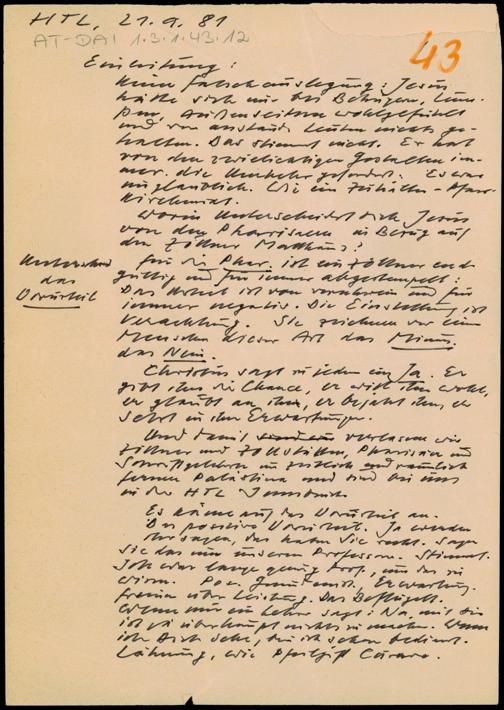 HTL, 21.9.81
AT-DAI 1.3.1.43.12
43
Einleitung:
Keine Falschauslegung: Jesus
hätte sich nur bei Betrügern, Lum-
pen, Außenseitern wohlgefühlt
und von anständ. Leuten nichts ge-
halten. Das stimmt nicht. Er hat
von den zwielichtigen Gestalten im-
mer die Umkehr gefordert. Es war
unglaublich. Wie ein Zuhälter-Pfarr-
kirchenrat.
Worin unterscheidet sich Jesus
von den Pharisäern in Bezug auf
den Zöllner Matthäus?
Unterschied
das
Vorurteil
Für die Phar. ist ein Zöllner end-
gültig und für immer abgestempelt:
Das Urteil ist von vornherein und für
immer negativ. Die Einstellung ist
Verachtung. Sie zeichnen vor einen
Menschen dieser Art das Minus,
das Nein.
Christus sagt zu jedem ein Ja. Er
gibt ihm die Chance, er will ihm wohl,
er glaubt an ihn, er bejaht ihn, er
setzt in ihn Erwartungen.
Und damit verlassen wir
Zöllner und Zollstätten, Pharisäer und
Schriftgelehrte im zeitlich und räumlich
fernen Palästina und sind bei uns
in der HTL Innsbruck
Es käme auf das Vorurteil an.
Das positive Vorurteil. Ja werden
Sie sagen, da haben Sie recht. Sagen
Sie das nur unseren Professoren. Stimmt.
Ich war lange genug Prof., um das zu
wissen. Erwartung
freuen über Leistung. Das beflügelt.
Wenn nur ein Lehrer sagt: Na, mit dir
ist ja überhaupt nichts zu machen. Wenn
ich dich sehe, bin ich schon bedient.
Lähmung, wie Curare.